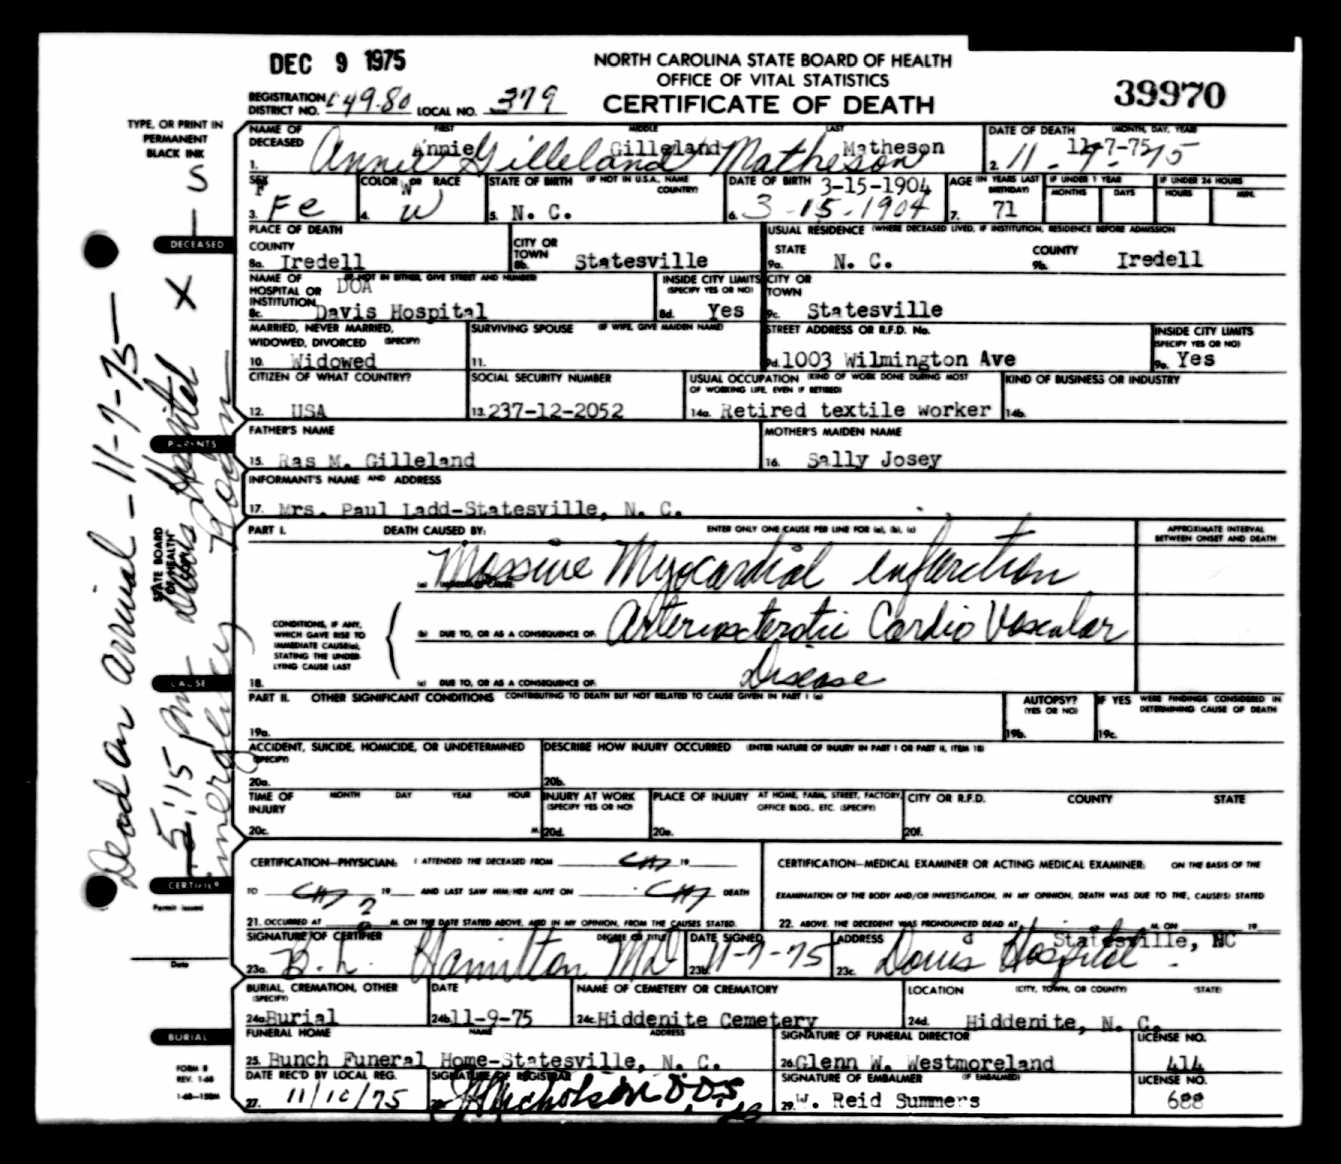 DEC 9 1975
NORTH CAROLINA STATE BOARD OF HEALTH
OFFICE OF VITAL STATISTICS
CERTIFICATE OF DEATH
39970
REGISTRATION DISTRICT NO. 49-80 LOCAL NO. 379
TYPE, OR PRINT IN
PERMANENT
BLACK INK
NAME OF DECEASED FIRST MIDDLE LAST
1. Annie Gilleland Matheson
Annie Gilleland Matheson
DATE OF DEATH (MONTH, DAY, YEAR)
2. 11-7-75
11-7-75
SEX
3. F Fe
COLOR OR RACE
4. W W
STATE OF BIRTH (IF NOT IN U.S.A., NAME COUNTRY)
5. N. C.
DATE OF BIRTH 3-15-1904
6. 3-15-1904
AGE (IN YEARS LAST BIRTHDAY)
7. 71
IF UNDER 1 YEAR
MONTHS DAYS
IF UNDER 24 HOURS
HOURS MIN.
DECEASED
PLACE OF DEATH
COUNTY
8a. Iredell
CITY OR TOWN
8b. Statesville
USUAL RESIDENCE (WHERE DECEASED LIVED, IF INSTITUTION, RESIDENCE BEFORE ADMISSION
STATE
9a. N. C.
COUNTY
9b. Iredell
NAME OF HOSPITAL OR INSTITUTION (IF NOT IN EITHER, GIVE STREET AND NUMBER)
DOA
8c. Davis Hospital
INSIDE CITY LIMITS (SPECIFY YES OR NO)
8d. Yes
CITY OR TOWN
9c. Statesville
MARRIED, NEVER MARRIED, WIDOWED, DIVORCED (SPECIFY)
10. Widowed
SURVIVING SPOUSE (IF WIFE, GIVE MAIDEN NAME)
11.
STREET ADDRESS OR R.F.D. No.
9d. 1003 Wilmington Ave
INSIDE CITY LIMITS (SPECIFY YES OR NO)
9e. Yes
CITIZEN OF WHAT COUNTRY?
12. USA
SOCIAL SECURITY NUMBER
13. 237-12-2052
USUAL OCCUPATION (KIND OF WORK DONE DURING MOST OF WORKING LIFE, EVEN IF RETIRED)
14a. Retired textile worker
KIND OF BUSINESS OR INDUSTRY
14b.
PARENTS
FATHER'S NAME
15. Ras M. Gilleland
MOTHER'S MAIDEN NAME
16. Sally Josey
INFORMANT'S NAME AND ADDRESS
17. Mrs. Paul Ladd-Statesville, N. C.
STATE BOARD
OF HEALTH
Dead on arrival - 11-7-75 -
5:15 PM Davis Hospital X
Emergency Room
CAUSE
PART I. DEATH CAUSED BY: ENTER ONLY ONE CAUSE PER LINE FOR (a), (b), (c)
APPROXIMATE INTERVAL
BETWEEN ONSET AND DEATH
(a) Massive Myocardial infarction
CONDITIONS, IF ANY,
WHICH GAVE RISE TO
IMMEDIATE CAUSE(a),
STATING THE UNDER-
LYING CAUSE LAST
(b) DUE TO, OR AS A CONSEQUENCE OF: Arteriosclerotic Cardio Vascular
18. (c) DUE TO, OR AS A CONSEQUENCE OF: Disease
PART II. OTHER SIGNIFICANT CONDITIONS CONTRIBUTING TO DEATH BUT NOT RELATED TO CAUSE GIVEN IN PART I (a)
19a.
AUTOPSY? (YES OR NO)
19b.
IF YES WERE FINDINGS CONSIDERED IN DETERMINING CAUSE OF DEATH
19c.
ACCIDENT, SUICIDE, HOMICIDE, OR UNDETERMINED (SPECIFY)
20a.
DESCRIBE HOW INJURY OCCURRED (ENTER NATURE OF INJURY IN PART I OR PART II, ITEM 18)
20b.
TIME OF INJURY MONTH DAY YEAR HOUR
20c. M.
INJURY AT WORK (SPECIFY YES OR NO)
20d.
PLACE OF INJURY AT HOME, FARM, STREET, FACTORY, OFFICE BLDG., ETC. (SPECIFY)
20e.
CITY OR R.F.D. COUNTY STATE
20f.
CERTIFIER
CERTIFICATION—PHYSICIAN: I ATTENDED THE DECEASED FROM 19
TO 19 AND LAST SAW HIM/HER ALIVE ON DEATH
21. OCCURRED AT M. ON THE DATE STATED ABOVE, AND IN MY OPINION, FROM THE CAUSES STATED.
CERTIFICATION—MEDICAL EXAMINER OR ACTING MEDICAL EXAMINER: ON THE BASIS OF THE
EXAMINATION OF THE BODY AND/OR INVESTIGATION, IN MY OPINION, DEATH WAS DUE TO THE, CAUSE(S) STATED
22. ABOVE. THE DECEDENT WAS PRONOUNCED DEAD AT M. ON 19
Permit issued
Date
SIGNATURE OF CERTIFIER DEGREE OR TITLE
23a. B. L. Hamilton MD
DATE SIGNED
23b. 11-7-75
ADDRESS Statesville, NC
23c. Davis Hospital
BURIAL
BURIAL, CREMATION, OTHER (SPECIFY)
24a. Burial
DATE
24b. 11-9-75
NAME OF CEMETERY OR CREMATORY
24c. Hiddenite Cemetery
LOCATION (CITY, TOWN, OR COUNTY) (STATE)
24d. Hiddenite, N. C.
FUNERAL HOME NAME ADDRESS
25. Bunch Funeral Home-Statesville, N. C.
SIGNATURE OF FUNERAL DIRECTOR
26. Glenn W. Westmoreland
LICENSE NO.
414
FORM 8
REV. 1-68
DATE REC'D BY LOCAL REG.
27. 11/10/75
SIGNATURE OF REGISTRAR
Nicholson D.D.S
SIGNATURE OF EMBALMER (IF EMBALMED)
29. W. Reid Summers
LICENSE NO.
688